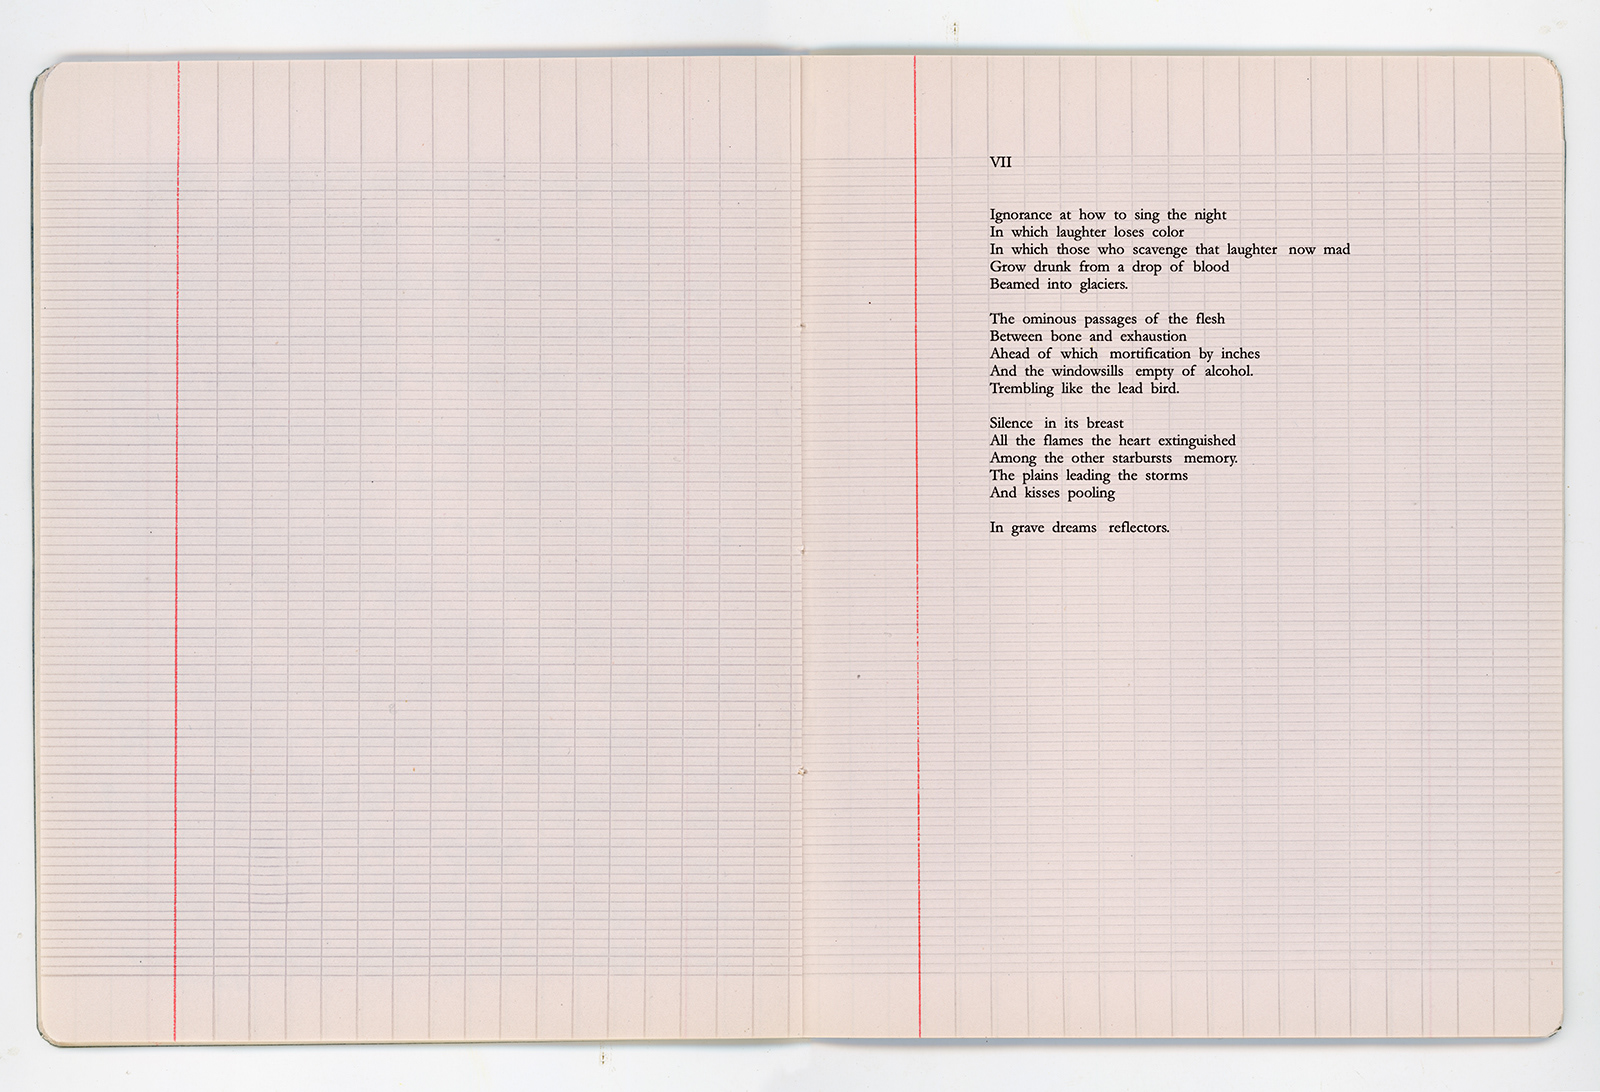 VII
Ignorance at how to sing the night
In which laughter loses color
In which those who scavenge that laughter now mad
Grow drunk from a drop of blood
Beamed into glaciers.
The ominous passages of the flesh
Between bone and exhaustion
Ahead of which mortification by inches
And the windowsills empty of alcohol.
Trembling like the lead bird.
Silence in its breast
All the flames the heart extinguished
Among the other starbursts memory.
The plains leading the storms
And kisses pooling
In grave dreams reflectors.